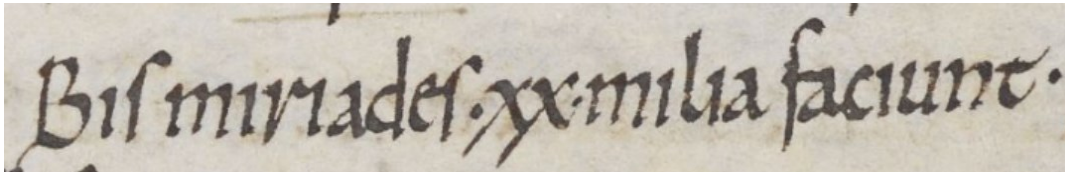 Bis miriades·xx·milia faciunt·